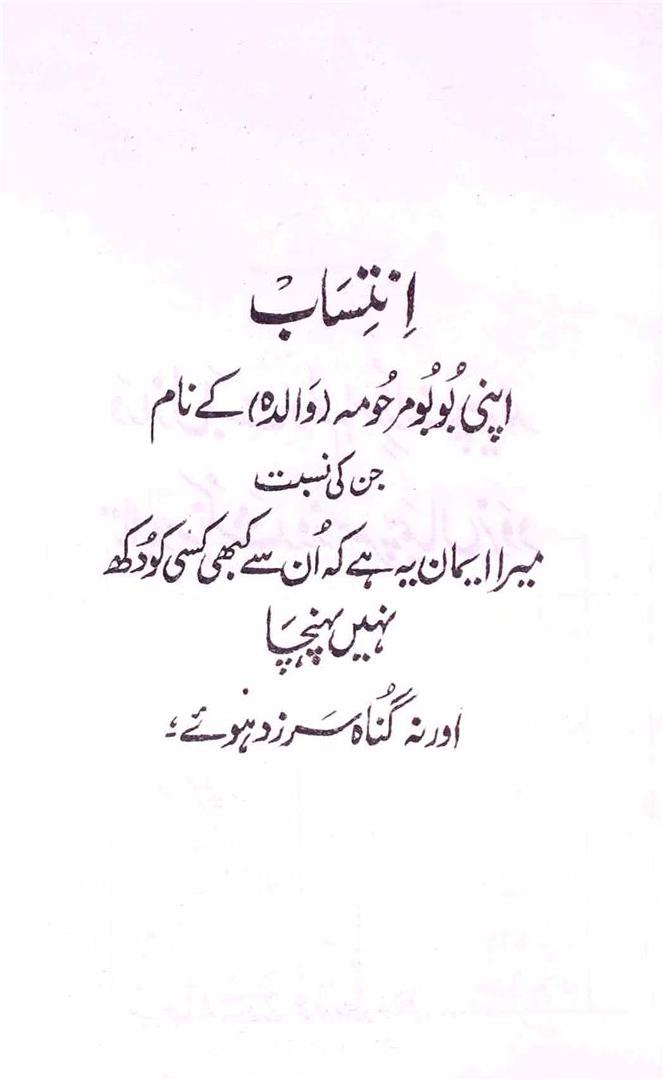 اِنتِسَابْ
اپنی بُوبُو مرحُومہ (وَالدہ) کے نام
جن کی نسبت
میرا ایمان یہ ہے کہ اُن سے کبھی کسی کو دُکھ
نہیں پہنچَا
اور نہ گُناہ سَرزد ہُوئے ؛